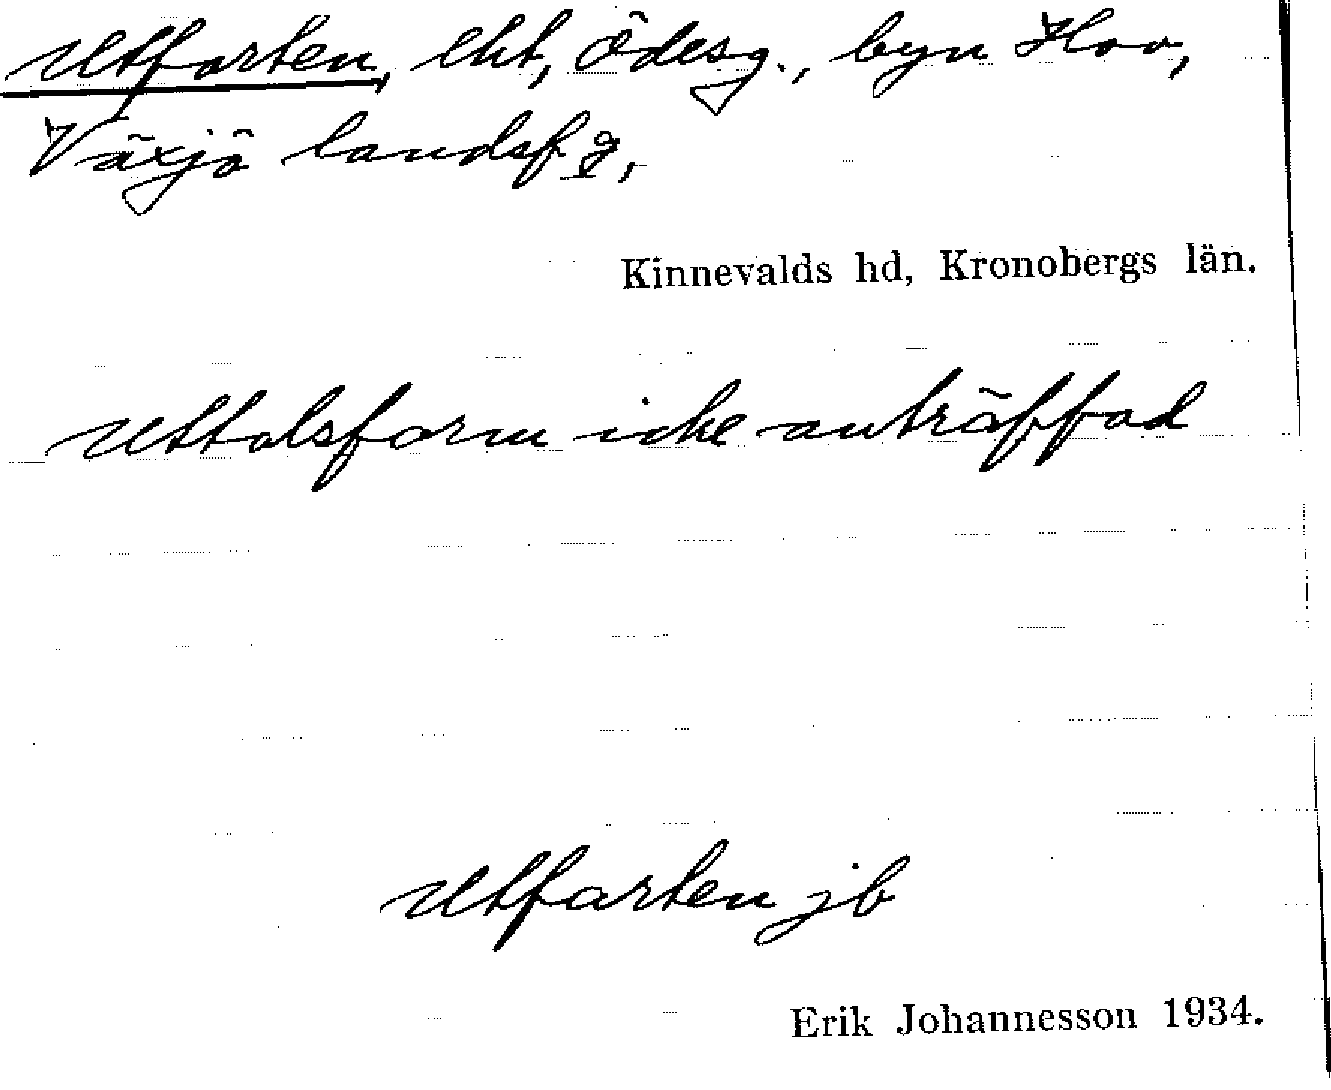 Utfarten, lht, Ödesg., byn Hov,
Växjö landsfg,
Kinnevalds hd, Kronobergs län.
Uttalsform icke anträffad
Utfarten jb
Erik Johannesson 1934.